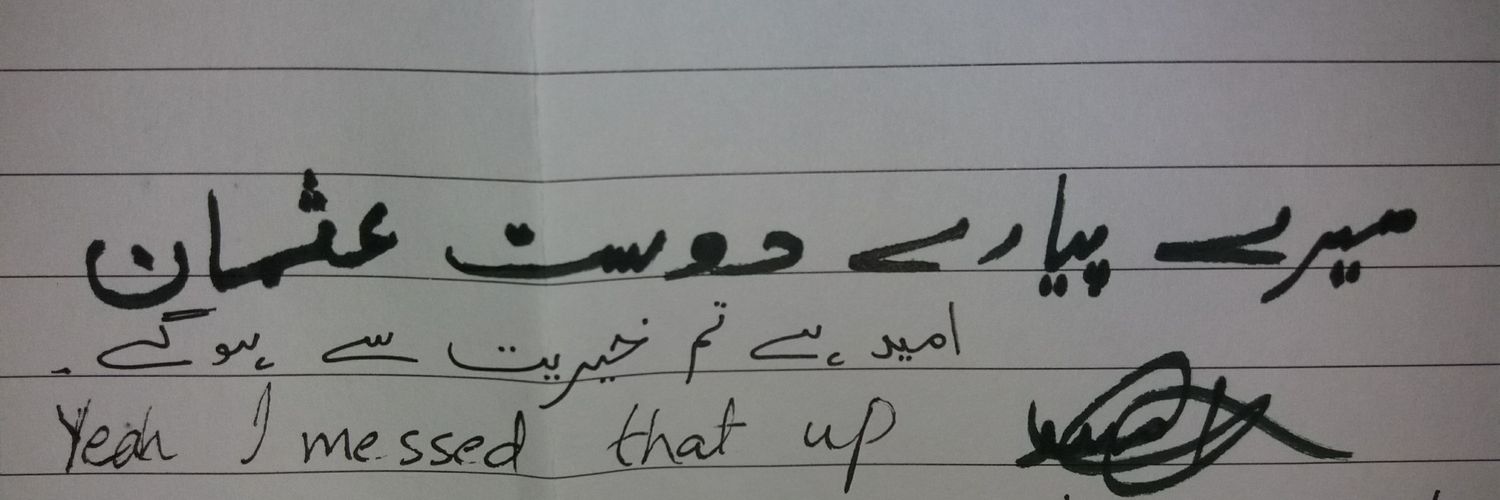 میرے پیارے دوست عثمان
امید ہے تم خیریت سے ہوگے۔
Yeah I messed that up